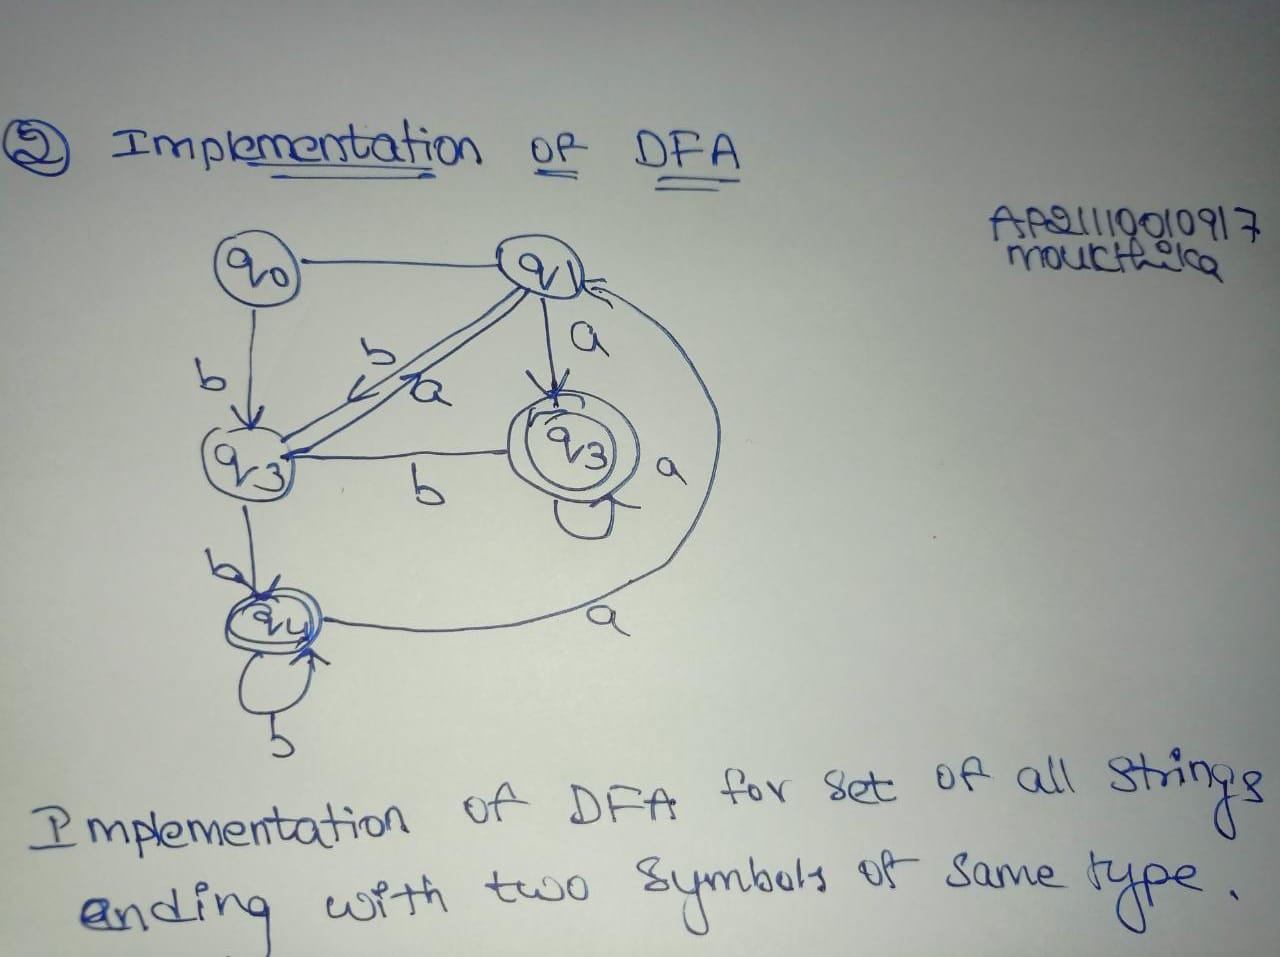 ② Implementation of DFA
AP21110010917
moukthika
q0 q1
b a
b a
q3 q3 a
b
b
q4 a
b
Implementation of DFA for set of all strings
ending with two symbols of same type.